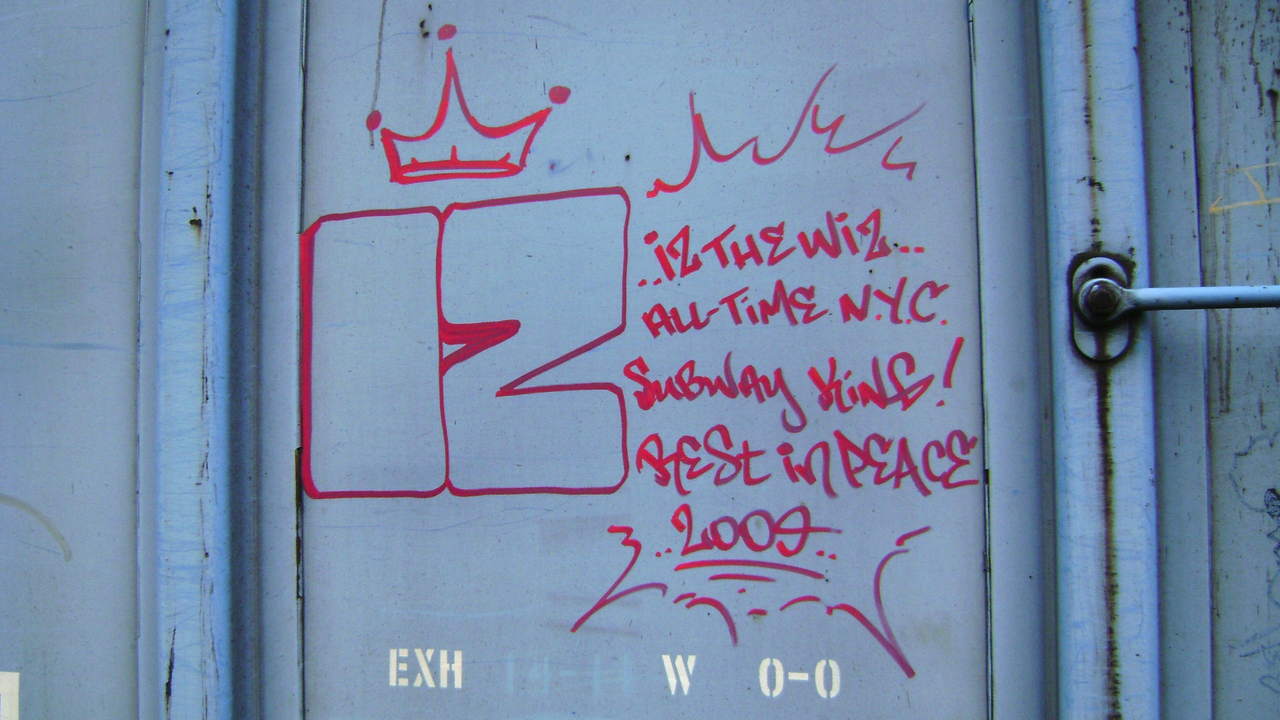 IZ
..iZ THE WiZ..
ALL-TiME N.Y.C.
SUBWAY KiNG!
REST iN PEACE
..2009..
EXH 14-11 W 0-0